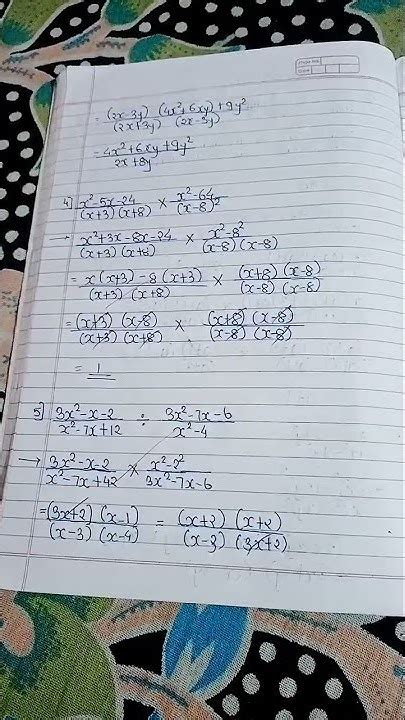 = (2x-3y) (4x²+6xy)+9y² / (2x+3y) (2x-3y)
= 4x²+6xy+9y² / 2x+8y
4] x²-5x-24 / (x+3) (x+8) × x²-64 / (x-8)²
→ x²+3x-8x-24 / (x+3) (x+8) × x²-8² / (x-8) (x-8)
= x(x+3)-8(x+3) / (x+3) (x+8) × (x+8) (x-8) / (x-8) (x-8)
= (x+3) (x-8) / (x+3) (x+8) × (x+8) (x-8) / (x-8) (x-8)
= 1
5] 3x²-x-2 / x²-7x+12 ÷ 3x²-7x-6 / x²-4
→ 3x²-x-2 / x²-7x+42 × x²-2² / 3x²-7x-6
= (3x+2) (x-1) / (x-3) (x-4) = (x+2) (x+2) / (x-3) (3x+2)